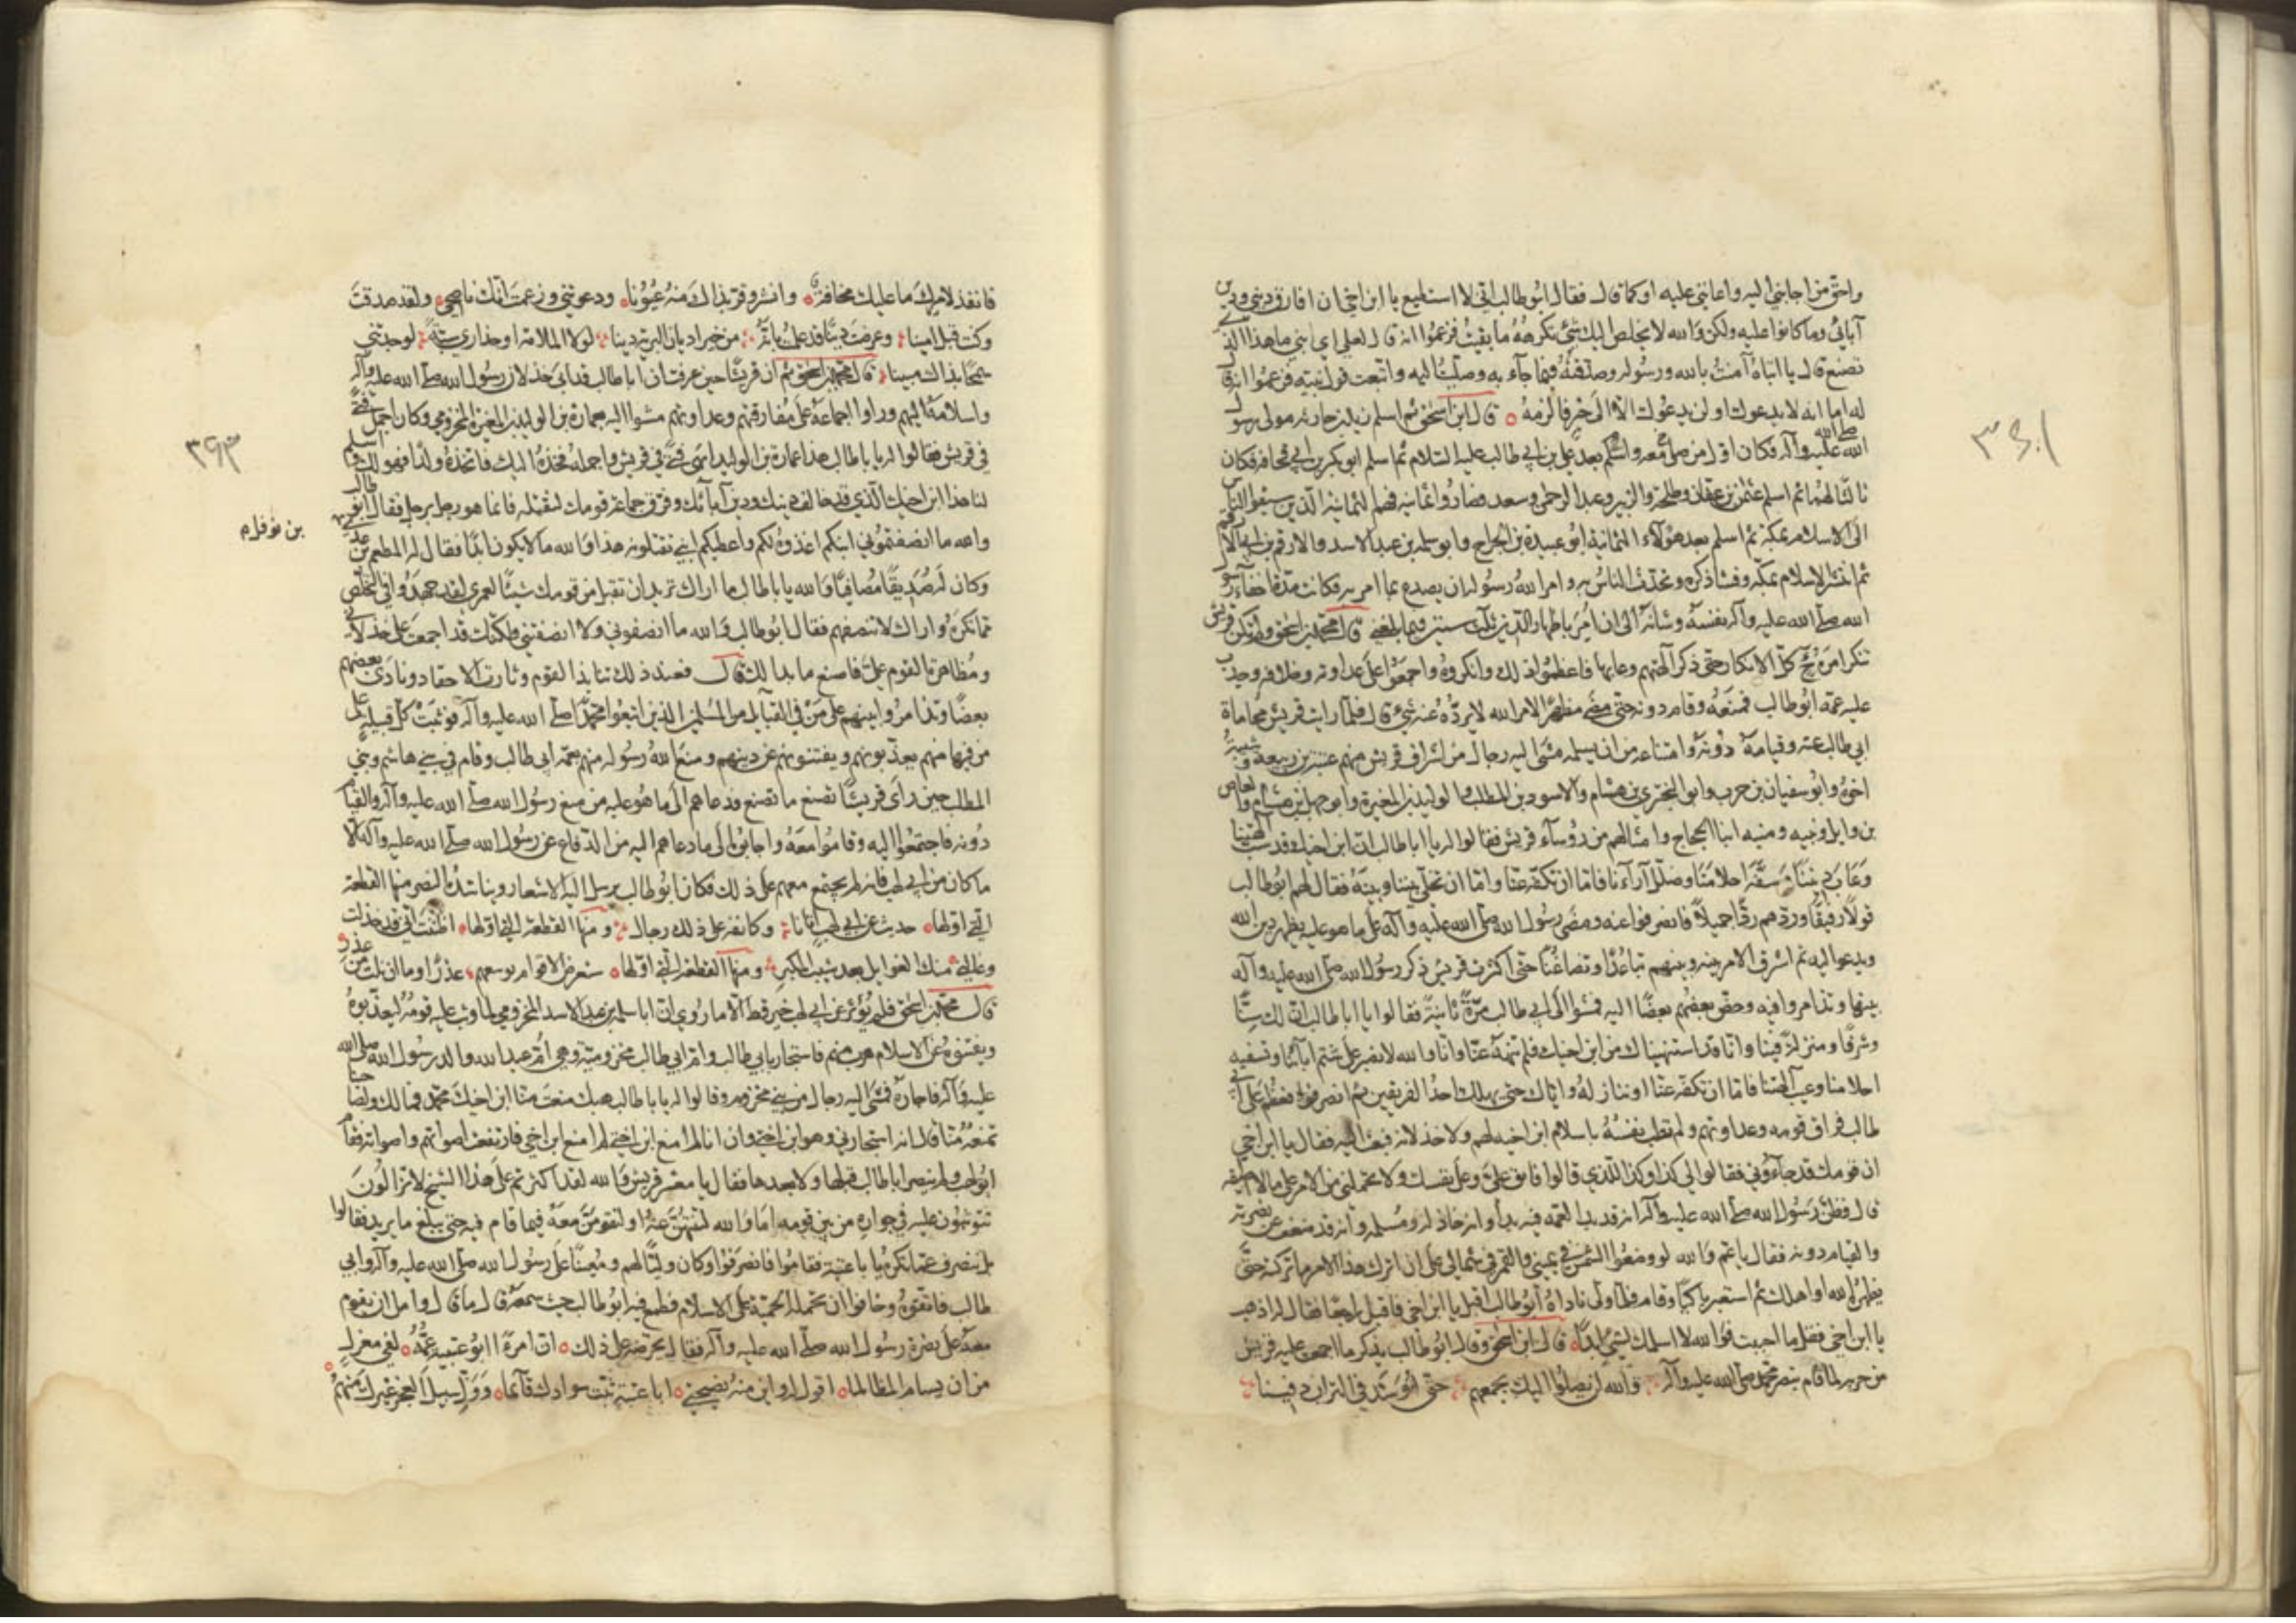 واحق من اجابني اليه واعانني عليه او كما قال فقال ابو طالب اني لا استطيع يا ابن اخي ان افارق ديني ودين
آبائي وما كانوا عليه ولكن والله لا يخلص اليك شئ تكرهه ما بقيت فزعموا انه قال لعلي اي بني ما هذا الذي
تصنع قال يا ابتاه آمنت بالله ورسوله وصدقته فيما جآء به وصليت اليه واتبعت قول نبيه فزعموا انه قال
له اما انه لا يدعوك او لن يدعوك الا الى خير فالزمه ٥ قال ابن اسحق ثم اسلم زيد بن حارثه مولى رسول
الله صلى الله عليه وآله فكان اول من صلى معه واسلم بعد علي بن ابي طالب عليه السلام ثم اسلم ابو بكر بن ابي قحافه فكان
ثالثا لهما ثم اسلم عثمن بن عفان وطلحة والزبير وعبد الرحمن وسعد فصاروا ثمانيه فهم الثمانية الذين سبقوا الناس
الى الاسلام بمكة ثم اسلم بعد هؤلاء الثمانية ابو عبيدة بن الجراح وابو سلمه بن عبد الاسد والارقم بن ابي الارقم
ثم انتشر الاسلام بمكة وفشا ذكره وتحدث الناس به وامر الله رسوله ان يصدع بما امر به فكانت مدة اخفآء رسول
الله صلى الله عليه وآله نفسه وشانه الى ان امر باظهار الدين ثلث سنين فيما بلغني قال محمد بن اسحق ولم تكن قريش
تنكر امره كل الانكار حتى ذكر آلهتهم وعابها فاعظموا ذلك وانكروه واجمعوا على عداوته وخلافه وحدب
عليه عمه ابو طالب فمنعه وقام دونه حتى مضى مظهرا لامر الله لا يرده عنه شئ قال فلما رات قريش محاماة
ابي طالب عنه وقيامه دونه وامتناعه من ان يسلمه مشى اليه رجال من اشراف قريش منهم عتبة بن ربيعة وشيبة
اخوه وابو سفيان بن حرب وابو البختري بن هشام والاسود بن المطلب والوليد بن المغيرة وابو جهل بن هشام والعاص
بن وايل ونبيه ومنبه ابنا الحجاج وامثالهم من رؤسآء قريش فقالوا له يا ابا طالب ان ابن اخيك قد سب آلهتنا
وعاب ديننا وسفه احلامنا وضلل آرآءنا فاما ان تكفه عنا واما ان تخلي بيننا وبينه فقال لهم ابو طالب
قولا رفيقا وردهم ردا جميلا فانصرفوا عنه ومضى رسول الله صلى الله عليه وآله على ما هو عليه يظهر دين الله
ويدعوا اليه ثم اشرق الامر بينه وبينهم تباعدا وتضاغنا حتى اكثرت قريش ذكر رسول الله صلى الله عليه وآله
بينها وتذامروا فيه وحض بعضهم بعضا اليه فمشوا الى ابي طالب مرة ثانية فقالوا يا ابا طالب ان لك سنا
وشرفا ومنزلة فينا وانا قد استنهيناك من ابن اخيك فلم تنهه عنا وانا والله لا نصبر على شتم ابآئنا وتسفيه
احلامنا وعيب آلهتنا فاما ان تكفه عنا او ننازله واياك حتى يهلك احد الفريقين ثم انصرفوا فعظم على ابي
طالب فراق قومه وعداوتهم ولم تطب نفسه باسلام ابن اخيه لهم ولا خذلانه فبعث اليه فقال يا ابن اخي
ان قومك قد جآءوني فقالوا لي كذا وكذا للذي قالوا فابق علي وعلى نفسك ولا تحملني من الامر على ما لا اطيقه
قال فظن رسول الله صلى الله عليه وآله انه قد بدا لعمه فيه بدأ وانه خاذله ومسلمه وانه قد ضعف عن نصرته
والقيام دونه فقال يا عم والله لو وضعوا الشمس في يميني والقمر في شمالي على ان اترك هذا الامر ما تركته حتى
يظهره الله او اهلك ثم استعبر باكيا وقام فلما ولى ناداه ابو طالب اقبل يا ابن اخي فاقبل راجعا فقال له اذهب
يا ابن اخي فقل ما احببت فو الله لا اسلمك لشئ ابدا ٥ قال ابن اسحق وقال ابو طالب يذكر ما اجمعت عليه قريش
من حربه لما قام بنصر محمد صلى الله عليه وآله والله لن يصلوا اليك بجمعهم حتى اوسد في التراب دفينا
٣٤١
فانفذ لامرك ما عليك مخافة ٥ وابشر وقر بذاك منه عيونا ٥ ودعوتني وزعمت انك ناصحي ٥ ولقد صدقت
وكنت قبل امينا وعرضت دينا قد علمت بانه من خير اديان البرية دينا لولا الملامة او حذاري سبة لوجدتني
سمحا بذاك مبينا قال محمد بن اسحق ثم ان قريشا حين عرفت ان ابا طالب قد ابى خذلان رسول الله صلى الله عليه وآله
واسلامه اليهم وراوا اجماعه على مفارقتهم وعداوتهم مشوا اليه بعمارة بن الوليد بن المغيرة المخزومي وكان اجمل فتى
في قريش فقالوا له يا با طالب هذا عمارة بن الوليد ابهى فتى في قريش واجمله فخذه اليك فاتخذه ولدا فهو لك واسلم
لنا هذا ابن اخيك الذي قد خالف دينك ودين آبآئك وفرق جماعة قومك لنقتله فانما هو رجل برجل فقال ابو طالب
والله ما انصفتموني ابنكم اغذوه لكم واعطيكم ابني تقتلونه هذا والله ما لا يكون ابدا فقال له المطعم بن عدي
بن نوفل ٥
وكان له صديقا مصافيا والله يا با طالب ما اراك تريد ان تقبل من قومك شيئا لعمري لقد جهدوا في التخلص
مما تكره واراك لا تنصفهم فقال ابو طالب والله ما انصفوني ولا انصفتني ولكنك قد اجمعت على خذلاني
ومظاهرة القوم علي فاصنع ما بدا لك قال فعند ذلك تنابذ القوم وثارت الاحقاد ونادى بعضهم
بعضا وتذامروا بينهم على من في القبآئل من المسلمين الذين اتبعوا محمدا صلى الله عليه وآله فوثبت كل قبيلة على
من فيها منهم يعذبونهم ويفتنونهم عن دينهم ومنع الله رسوله منهم بعمه ابي طالب وقام في بني هاشم وبني
المطلب حين راى قريشا تصنع ما تصنع فدعاهم الى ما هو عليه من منع رسول الله صلى الله عليه وآله والقيام
دونه فاجتمعوا اليه وقاموا معه واجابوا الى ما دعاهم اليه من الدفاع عن رسول الله صلى الله عليه وآله الا
ما كان من ابي لهب فانه لم يجتمع معهم على ذلك فكان ابو طالب يرسل اليه الاشعار ويناشده النصر منها القطعة
التي اولها ٥ حديث عن ابي لهب اتانا وكانفه على ذلك رجال ومنها القطعة التي اولها ٥ اظننت اني قد خذلت
وغالني منك الغوايل بعد شيب المكبر ومنها القطعة التي اولها ٥ ستعرض الاقوام بوسعهم عذرا وما ان قلت من عذر
قال محمد بن اسحق فلم يؤثر عن ابي لهب خير قط الا ما روي ان ابا سلمة بن عبد الاسد المخزومي لما وثب عليه قومه ليعذبوه
ويفتنوه عن الاسلام هرب منهم فاستجار بابي طالب وام ابي طالب مخزومية وهي ام عبد الله والد رسول الله صلى الله
عليه وآله فاجاره فمشى اليه رجال من بني مخزوم وقالوا له يا با طالب هبك منعت منا ابن اخيك محمد فما لك ولصاحبنا
تمنعه منا قال انه استجار بي وهو ابن اختي وان انا لم امنع ابن اختي لم امنع ابن اخي فارتفعت اصواتهم واصواته فقام
ابو لهب ولم ينصر ابا طالب قبلها ولا بعدها فقال يا معشر قريش والله لقد اكثرتم على هذا الشيخ لا تزالون
تتوثبون عليه في جواره من بين قومه اما والله لتنتهن عنه او لنقومن معه فيما قام فيه حتى يبلغ ما يريد فقالوا
بل ننصرف عما تكره يا با عتبة فقاموا فانصرفوا وكان وليا لهم ومعينا على رسول الله صلى الله عليه وآله وابي
طالب فاتقوه وخافوا ان تحمله الحمية على الاسلام فطمع فيه ابو طالب حيث سمعه قال ما قال وامل ان يقوم
معه على نصرة رسول الله صلى الله عليه وآله فقال يحرضه على ذلك ٥ ان امرءا ابو عتيبة عمه ٥ لفي معزل
من ان يسام المظالما ٥ اقول له واين منه نصيحتي ٥ ابا عتبة ثبت سوادك قآئما ٥ وول سبيل العجز غيرك منهم
٣٤٣